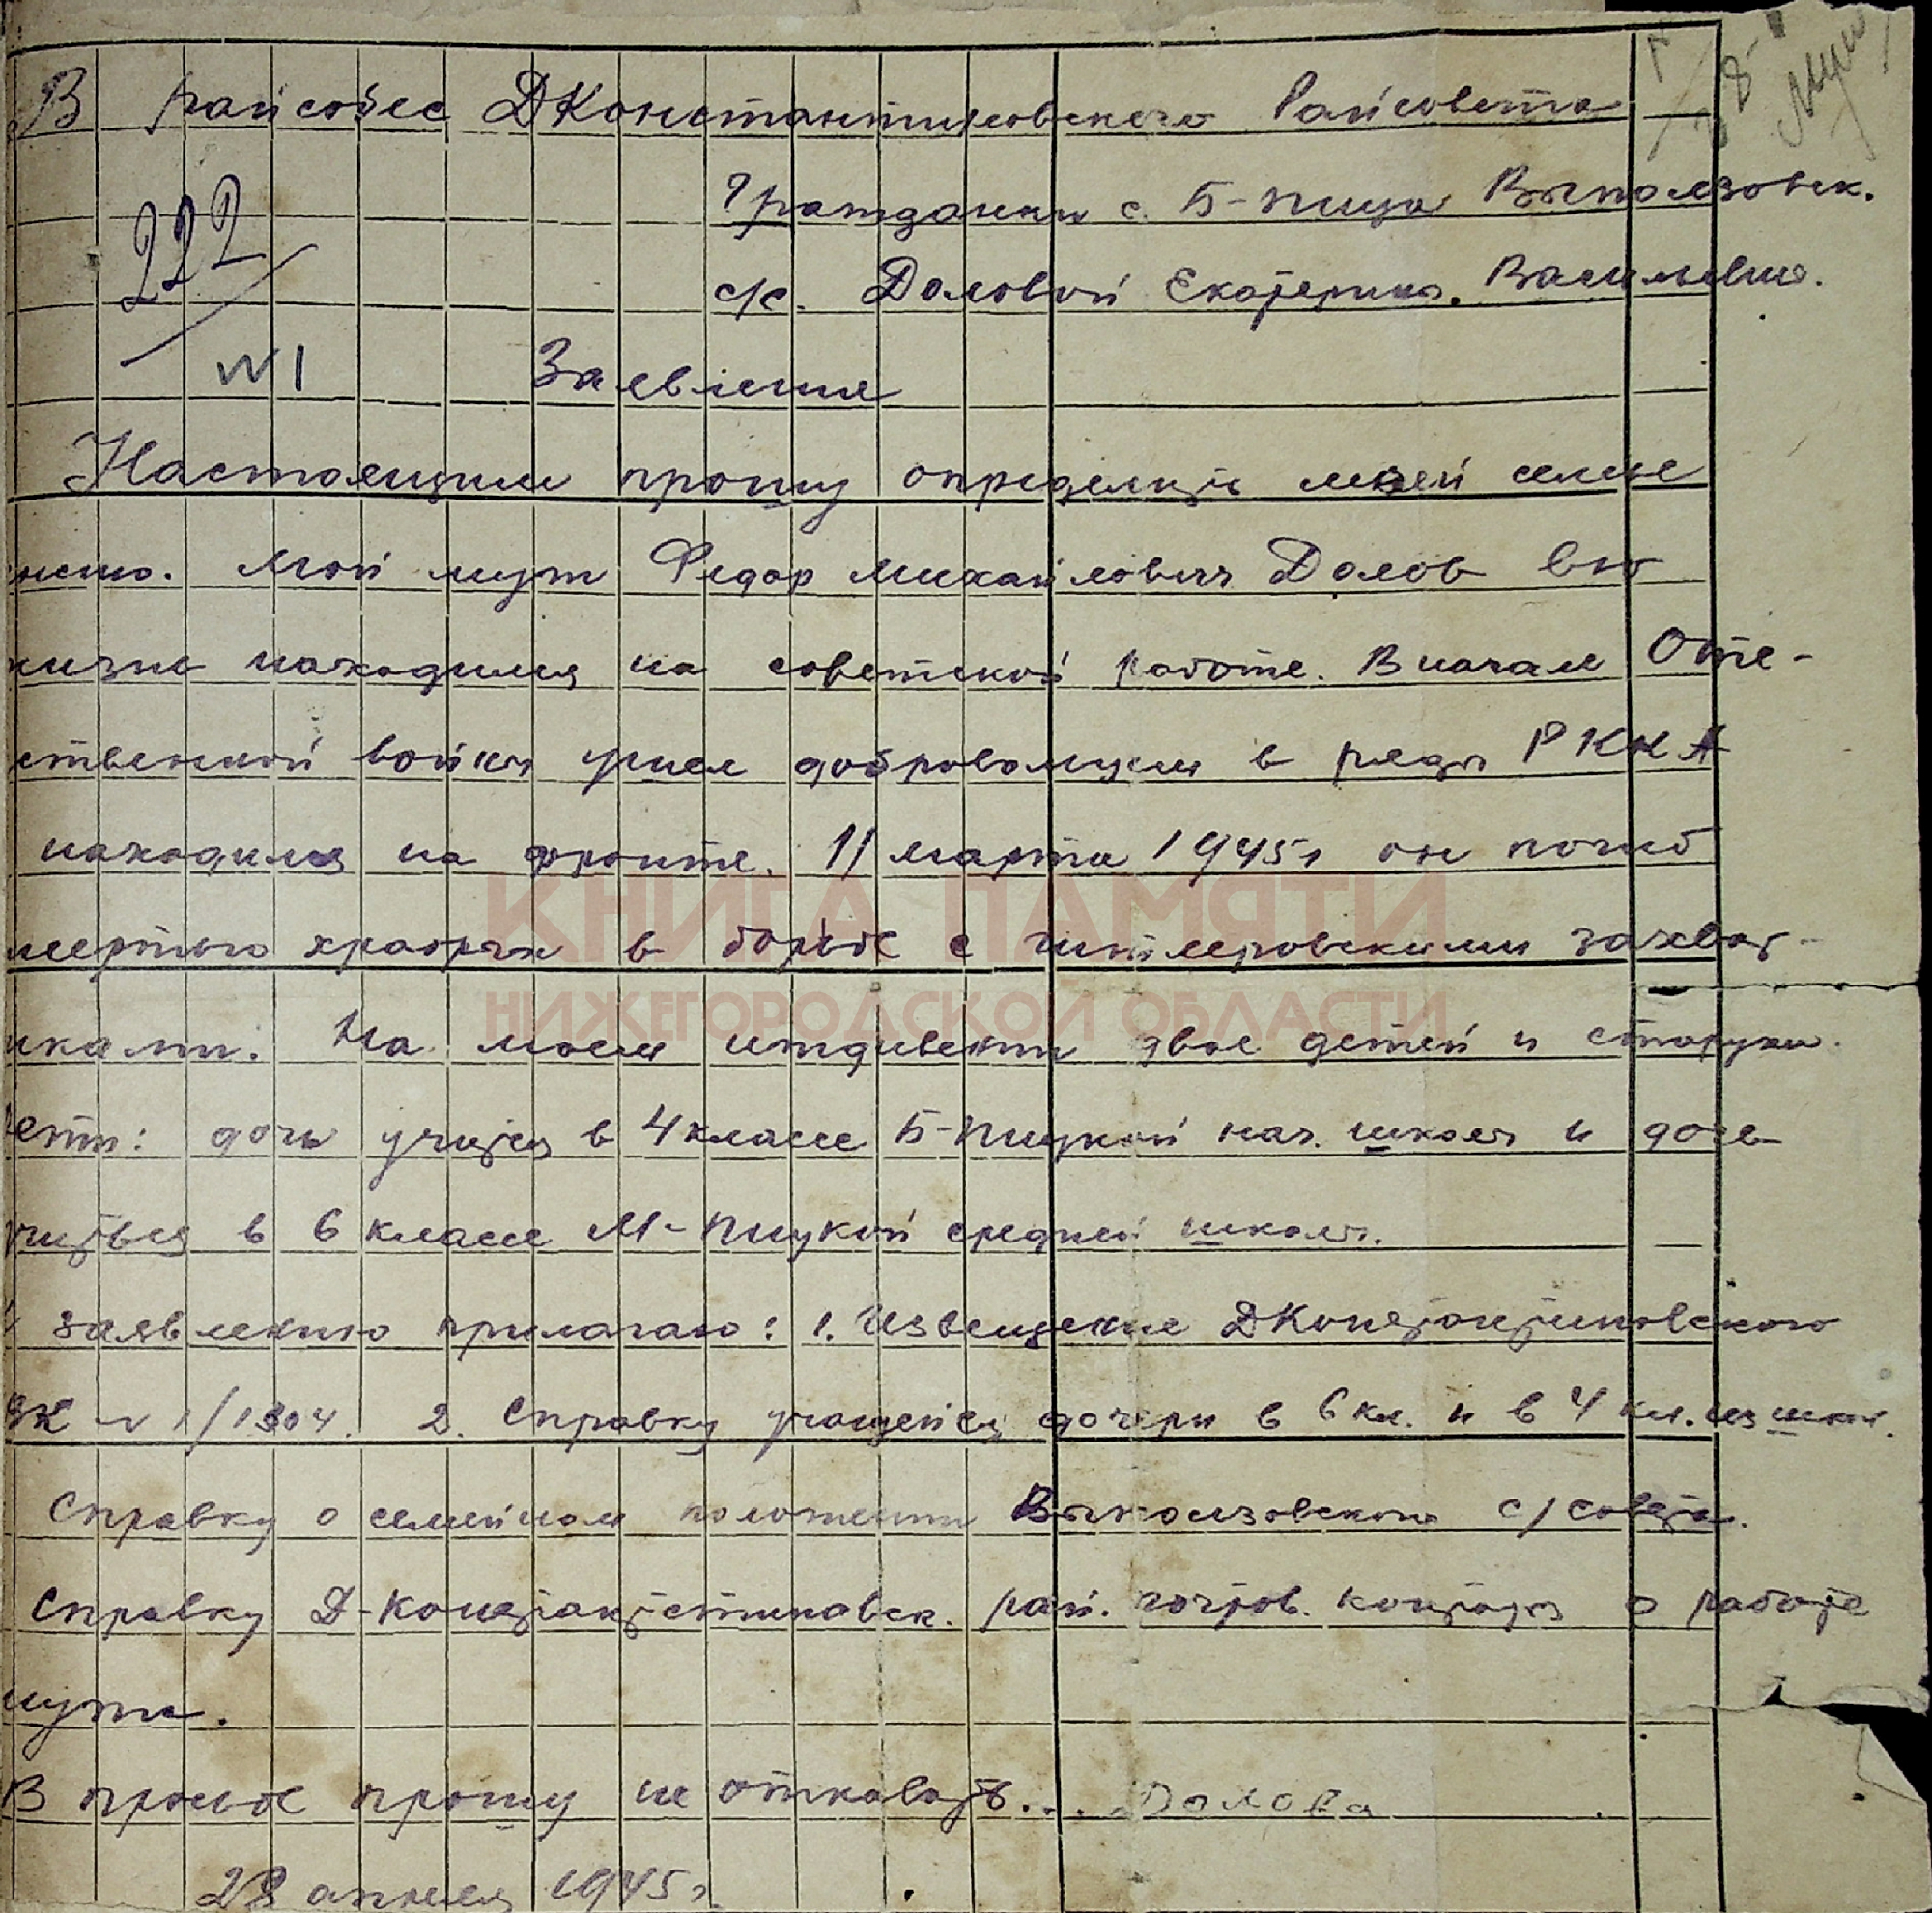 В райсобес ДКонстантиновского Райсовета
Гражданки с. Б-Пица Выползовск.
222
с/с. Доловой Екатерины. Васильевне.
N1
Заявление
Настоящим прошу определить моей семье
енсию. Мой муж Федор Михайлович Долов всю
жизнь находился на советской работе. В начале Оте-
ственной войны ушел добровольцем в ряды РККА
находился на фронте. 11 марта 1945г он погиб
мертью храбрых в борьбе с гитлеровскими захват-
иками. На моем иждивении двое детей и старуха.
ети: дочь учится в 4 классе Б-Пицкой нач. школы и дочь
учиться в 6 классе М-Пицкой средней школы.
заявлению прилагаю: 1. Извещение ДКонстантиновского
ВК N 1/1304. 2. Справку учащейся дочери в 6 кл. и в 4 кл. из школ.
Справку о семейном положении Выползовского с/совета.
Справку Д-Константстиновск. рай. почтов. конторы о работе
мужа.
В просьбе прошу не отказать... Долова
28 апреля 1945г.
КНИГА ПАМЯТИ
НИЖЕГОРОДСКОЙ ОБЛАСТИ